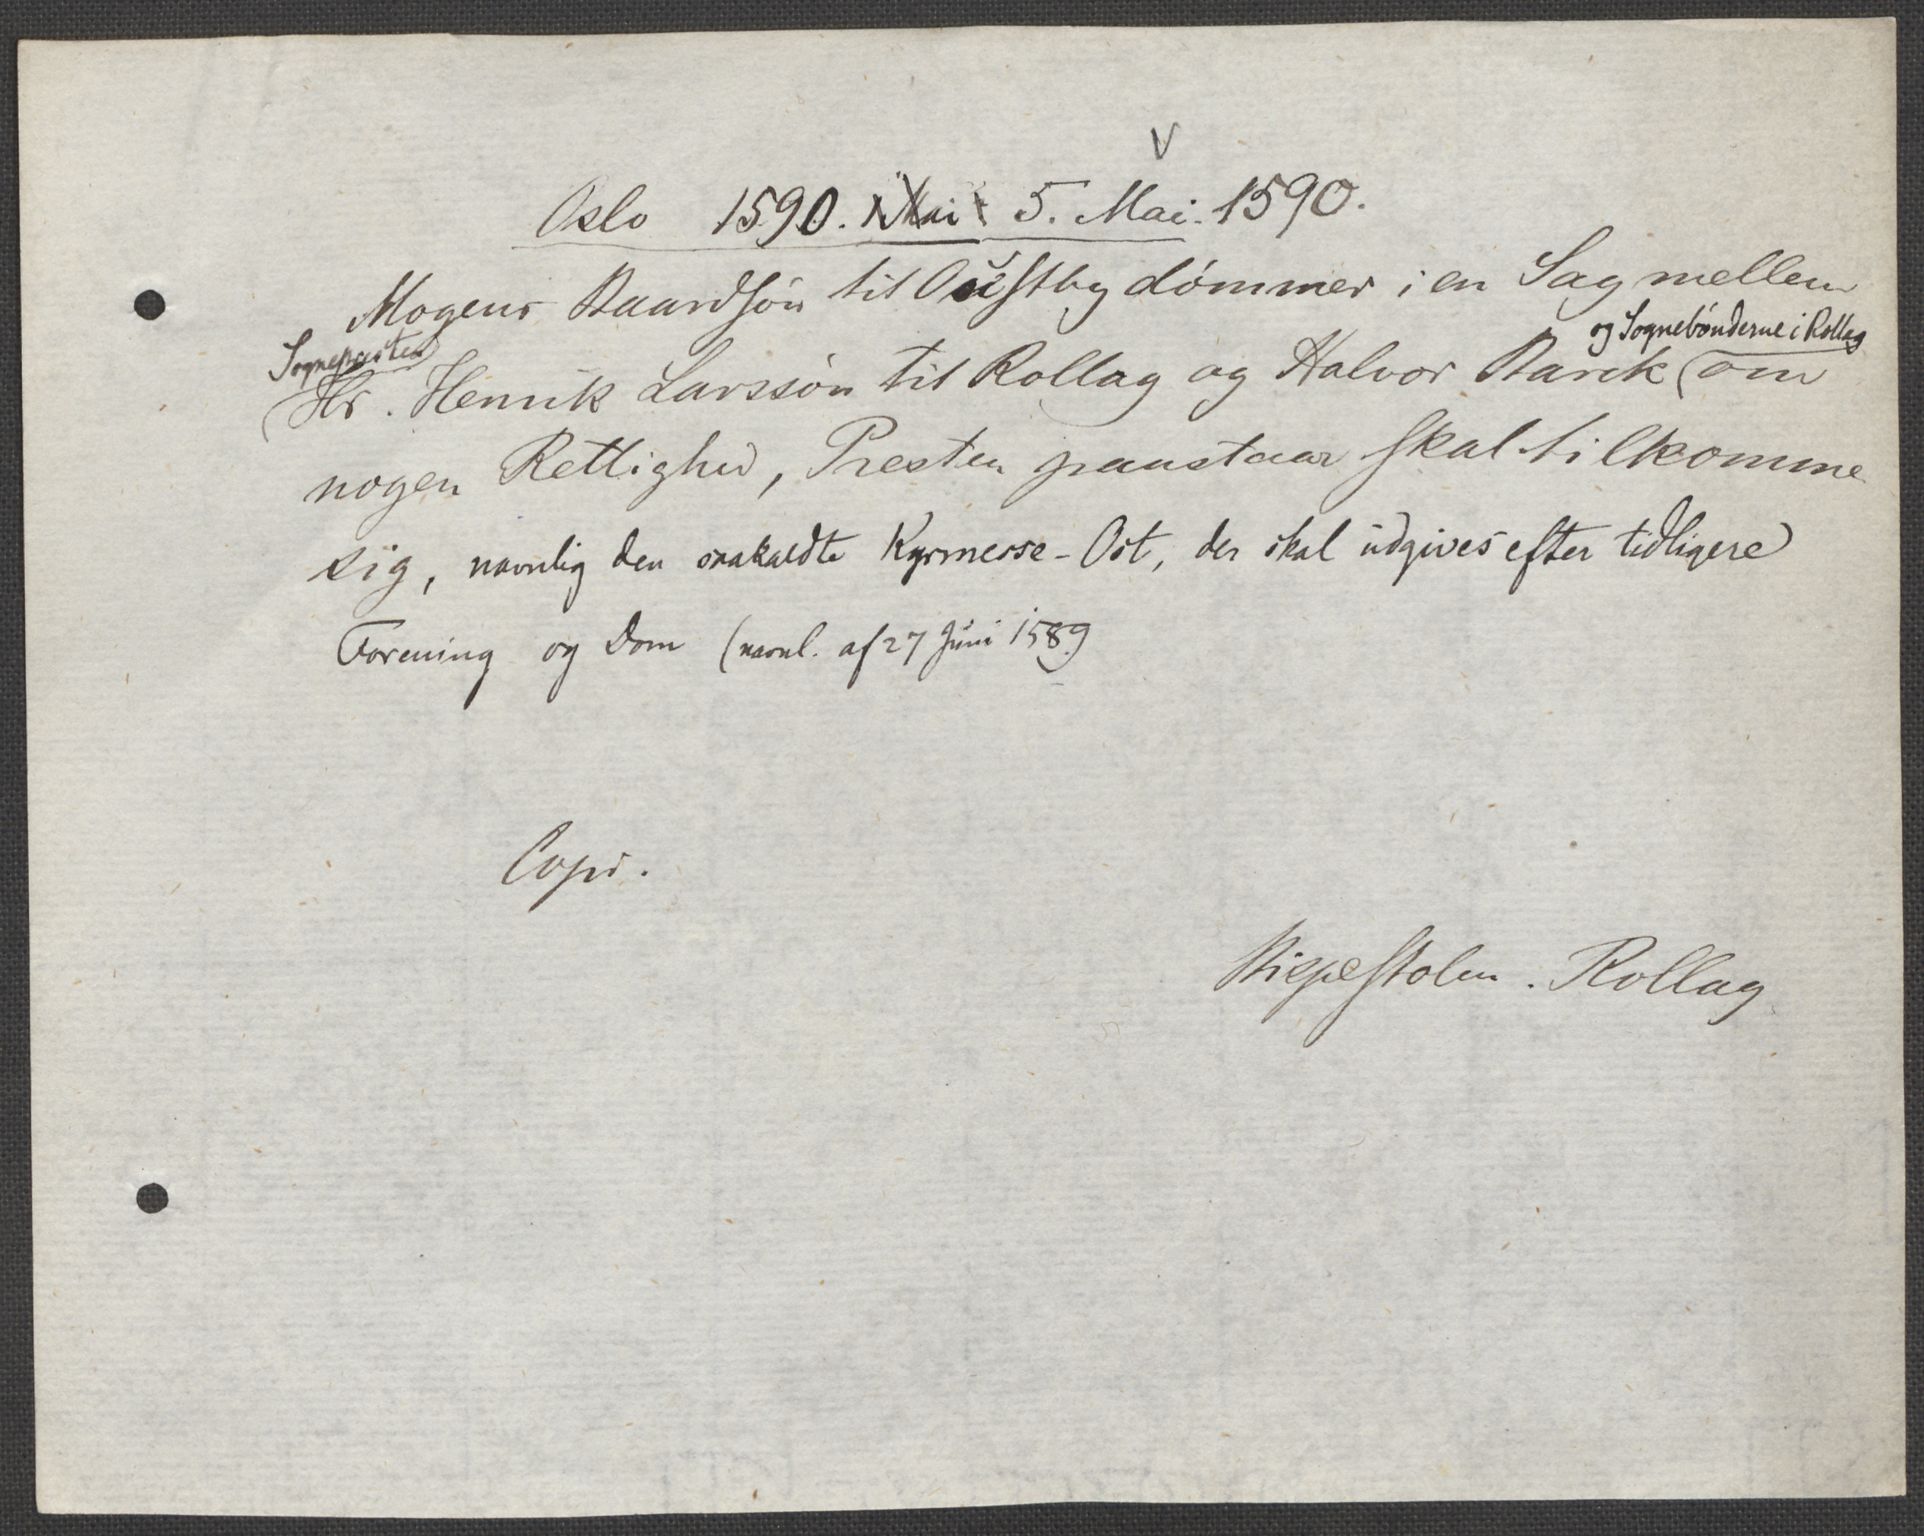 V
Oslo 1590. 1 Mai 5. Mai. 1590.
Mogens Baardsøn til Oustby dømmer i en Sag mellem
Sognepresten og Sognebønderne i Rollag
Hr. Henrik Larssøn til Rollag og Halvor Barck (om
nogen Rettighed, Presten paastaar skal tilkomme
sig, navnlig den saakaldte Kyrmesse-Ost, der skal udgives efter tidligere
Forening og Dom (navnl. af 27 Juni 1589
Copi.
Bispestolen. Rollag